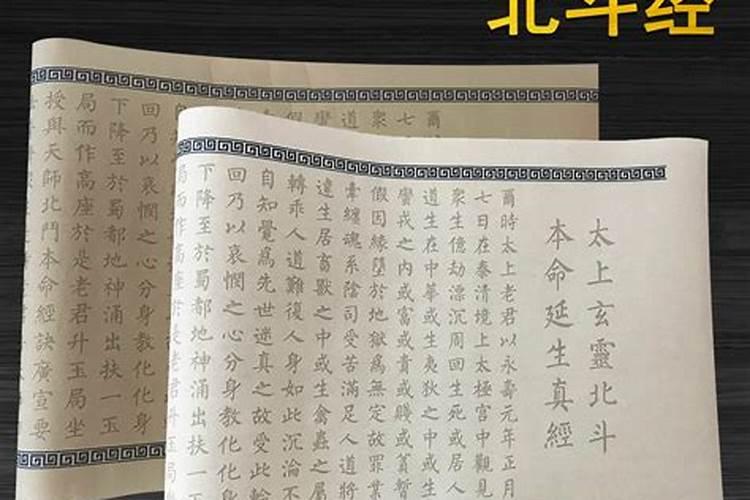 北斗经
太上玄靈北斗
本命延生真經
爾時太上老君以永壽元年正月
七日在泰清境上太極宮中觀見
衆生億劫漂沉周回生死或居人
道生在中華或生夷狄之中或生
蠻戎之內或富或貴或賤或暫
假因緣墮於地獄爲無定故罪業
牽纏魂系陰司受苦滿足人道將
違生居畜獸之中或生禽蟲之属
轉乖人道難復人身如此沉淪不
自知覺爲先世迷真之故受此輪
回乃以哀憫之心分身教化化身
下降至於蜀都地神涌出扶一玉
局而作高座於是老君升玉局
爾
七
衆
道
蠻
假
自
回乃以哀憫之心分身教化化身
下降至於蜀都地神涌出扶一玉
局而作高座於是老君升玉局坐
授與天師北鬥本命經訣廣宣要